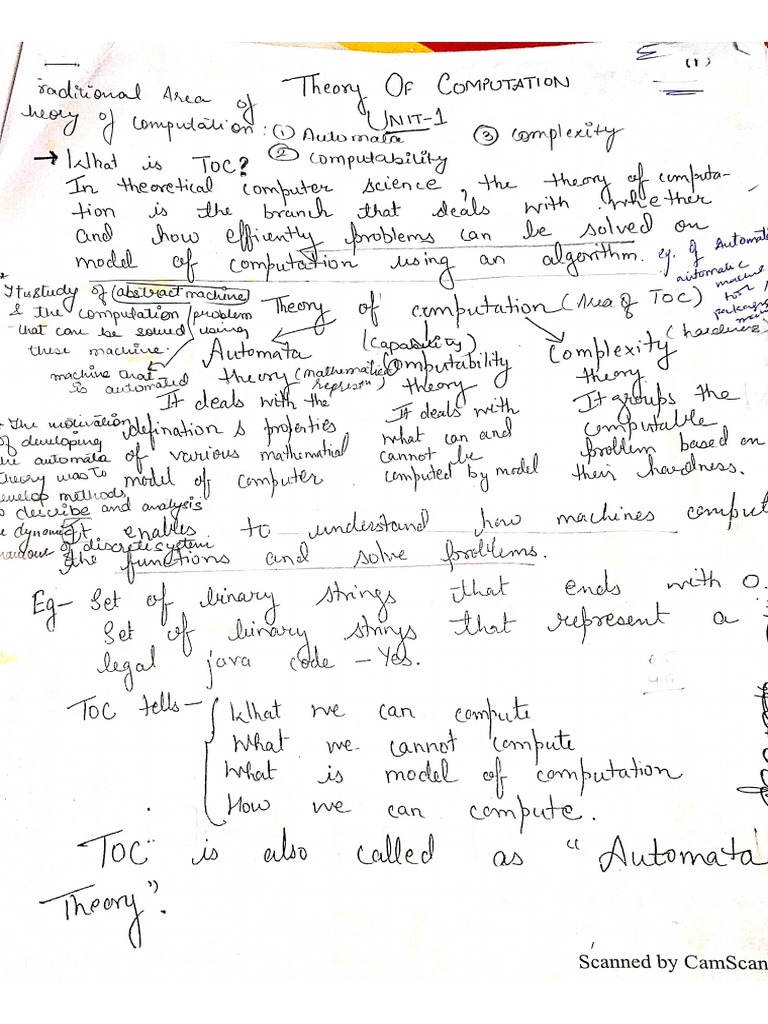 (1)
Theory OF COMPUTATION
UNIT-1
raditional Area of
heory of computation: (1) Automata
② computability
③ complexity
→ What is TOC?
In theoretical computer science, the theory of computa-
tion is the branch that deals with whether
and how effiently problems can be solved on
model of computation using an algorithm.
eg. of Automat
automatic
machine
Theory of computation (Area of TOC)
It study of (abstract machine)
& the computation problem
that can be solved using
these machine.
machine that
is automated
Automata
theory (mathematical
It deals with the
defination & properties
of various mathematial
model of computer
(Capability)
Computability
theory
It deals with
what can and
cannot be
computed by model
(hardness)
Complexity
theory
It groups the
computable
problem based on
their hardness.
The motivation
of developing
automata
theory was to
develop methods
describe and analysis
dynamic
of discrete system
It enables to understand how machines comput
the functions and solve problems.
Eg- Set of binary strings that ends with 0.
Set of binary strings that represent a
legal java code - Yes.
TOC tells - { What we can compute
What we cannot compute
What is model of computation
How we can compute.
TOC is also called as "Automata
Theory".
Scanned by CamScan